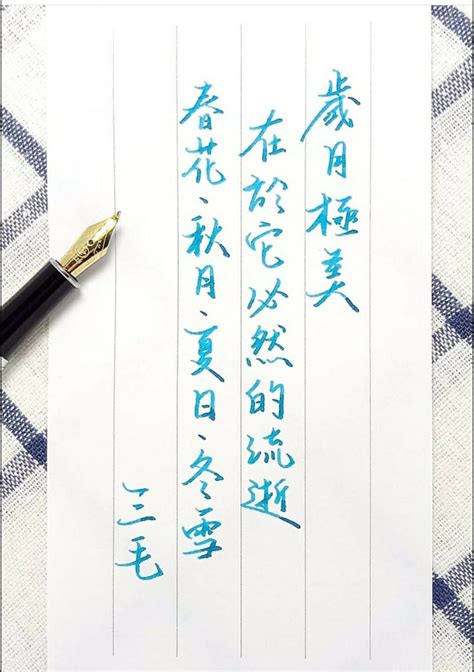 歲月極美
在於它必然的流逝
春花、秋月、夏日、冬雪
三毛